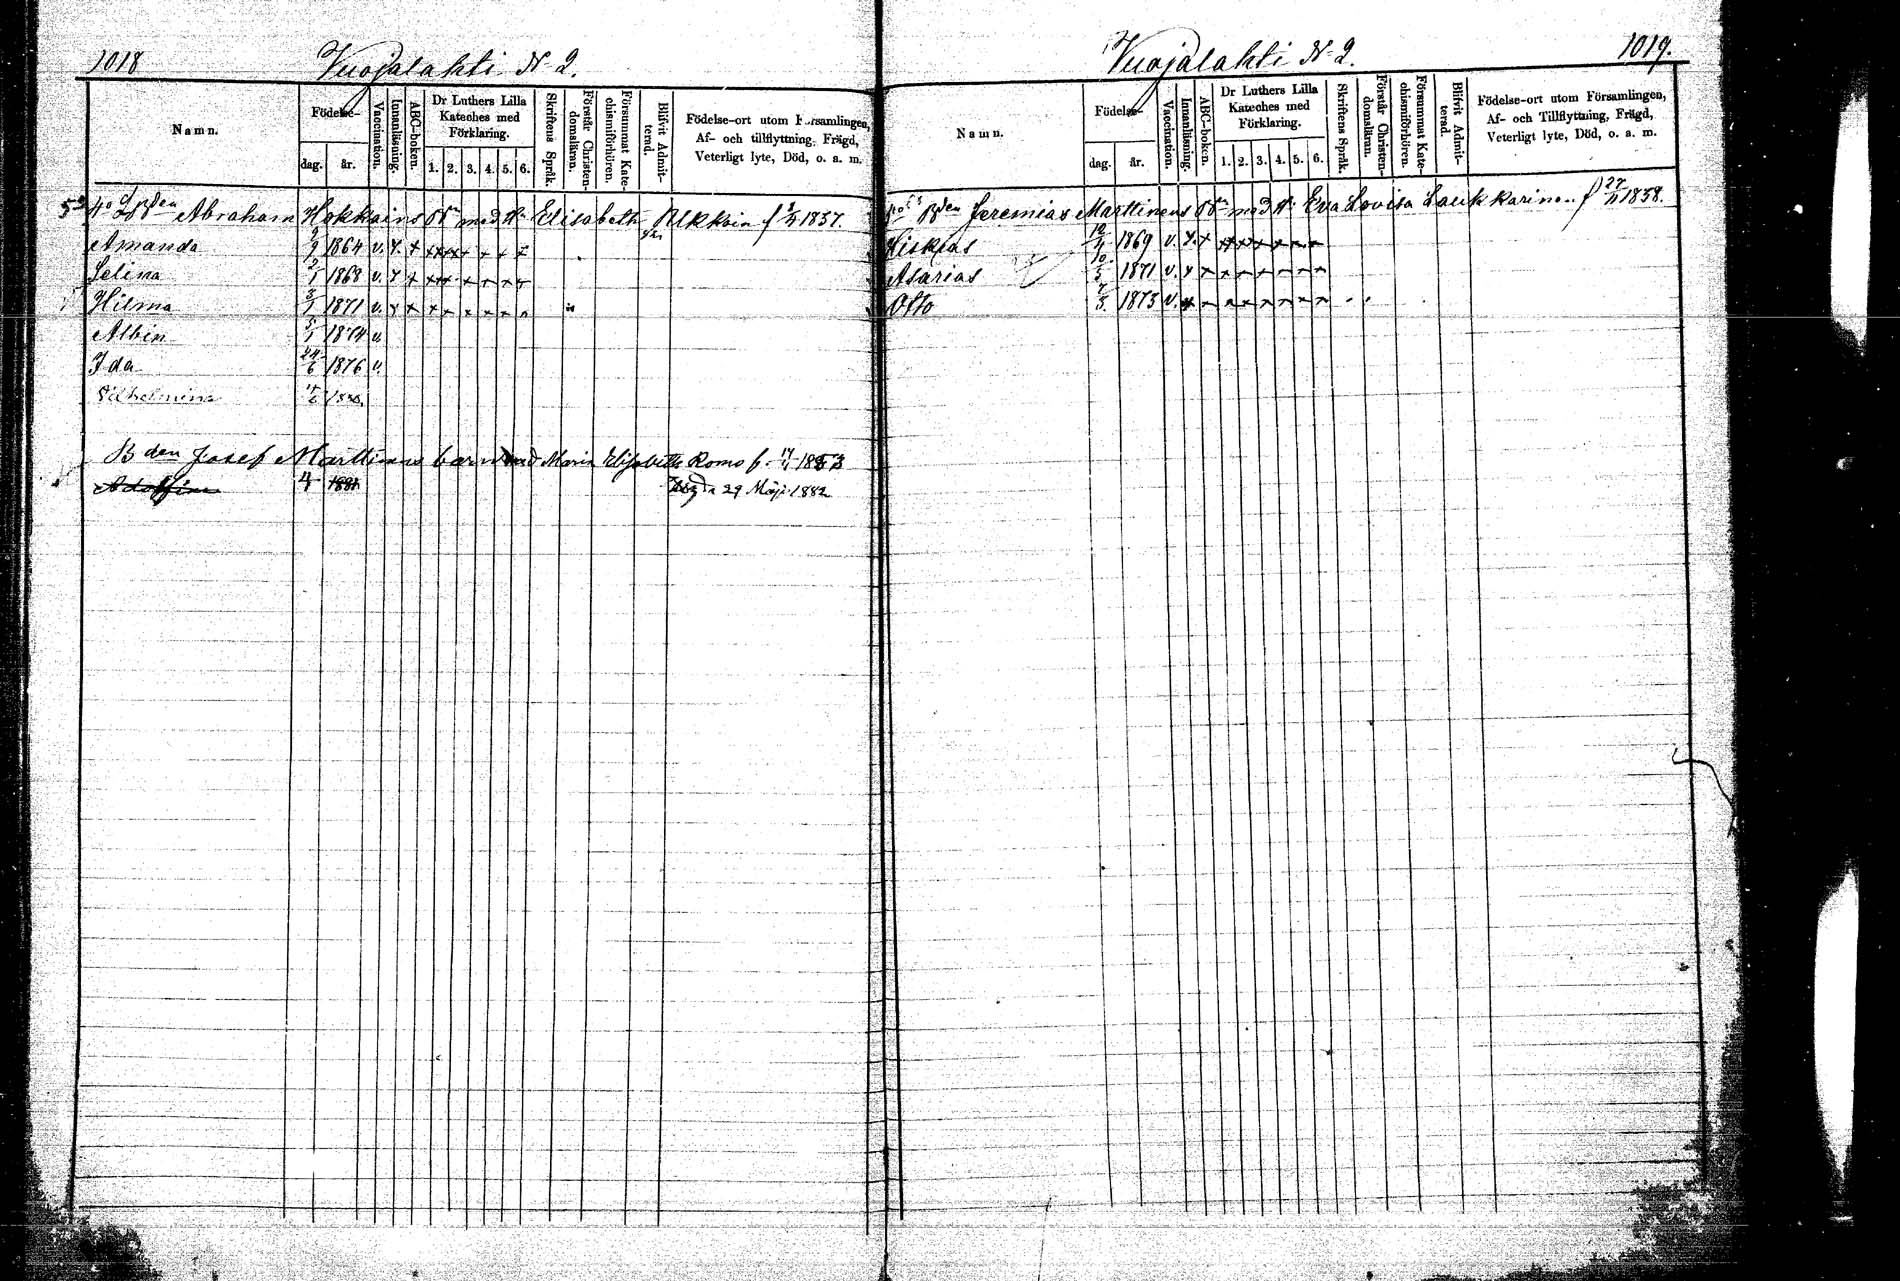 1018
Vuojalahti N 2.
Namn.
Födelse-
dag.
år.
Vaccination.
Innanläsning.
ABC-boken.
Dr Luthers Lilla
Kateches med
Förklaring.
1. 2. 3. 4. 5. 6.
Skriftens Språk.
Förstår Christen-
domsläran.
Försummat Kate-
chismiförhören.
Blifvit Admit-
terad.
Födelse-ort utom Församlingen,
Af- och tillflyttning, Frägd,
Veterligt lyte, Död, o. a. m.
Bden Abraham Hokkains med Elisabeth Ulkkoin f 1837.
Amanda 1864 v.
Selina 1868 v.
Hilma 1871 v.
Albin 1874 v
Ida 24/6 1876 v.
Vilhelmina
Bden Josef Marttinens barn med Maria Elisabeth Romo f.
Adolfina 1881 Död 29 Maji 1882
Vuojalahti N 2.
1019.
Namn.
Födelse-
dag.
år.
Vaccination.
Innanläsning.
ABC-boken.
Dr Luthers Lilla
Kateches med
Förklaring.
1. 2. 3. 4. 5. 6.
Skriftens Språk.
Förstår Christen-
domsläran.
Försummat Kate-
chismiförhören.
Blifvit Admit-
terad.
Födelse-ort utom Församlingen,
Af- och Tillflyttning, Frägd,
Veterligt lyte, Död, o. a. m.
Bden Jeremias Marttinens med Eva Lovisa Laukkarinen f 27/11 1838.
Hiskias 1869 v.
Asarias 10/5 1871 v.
Otto 1873 v.